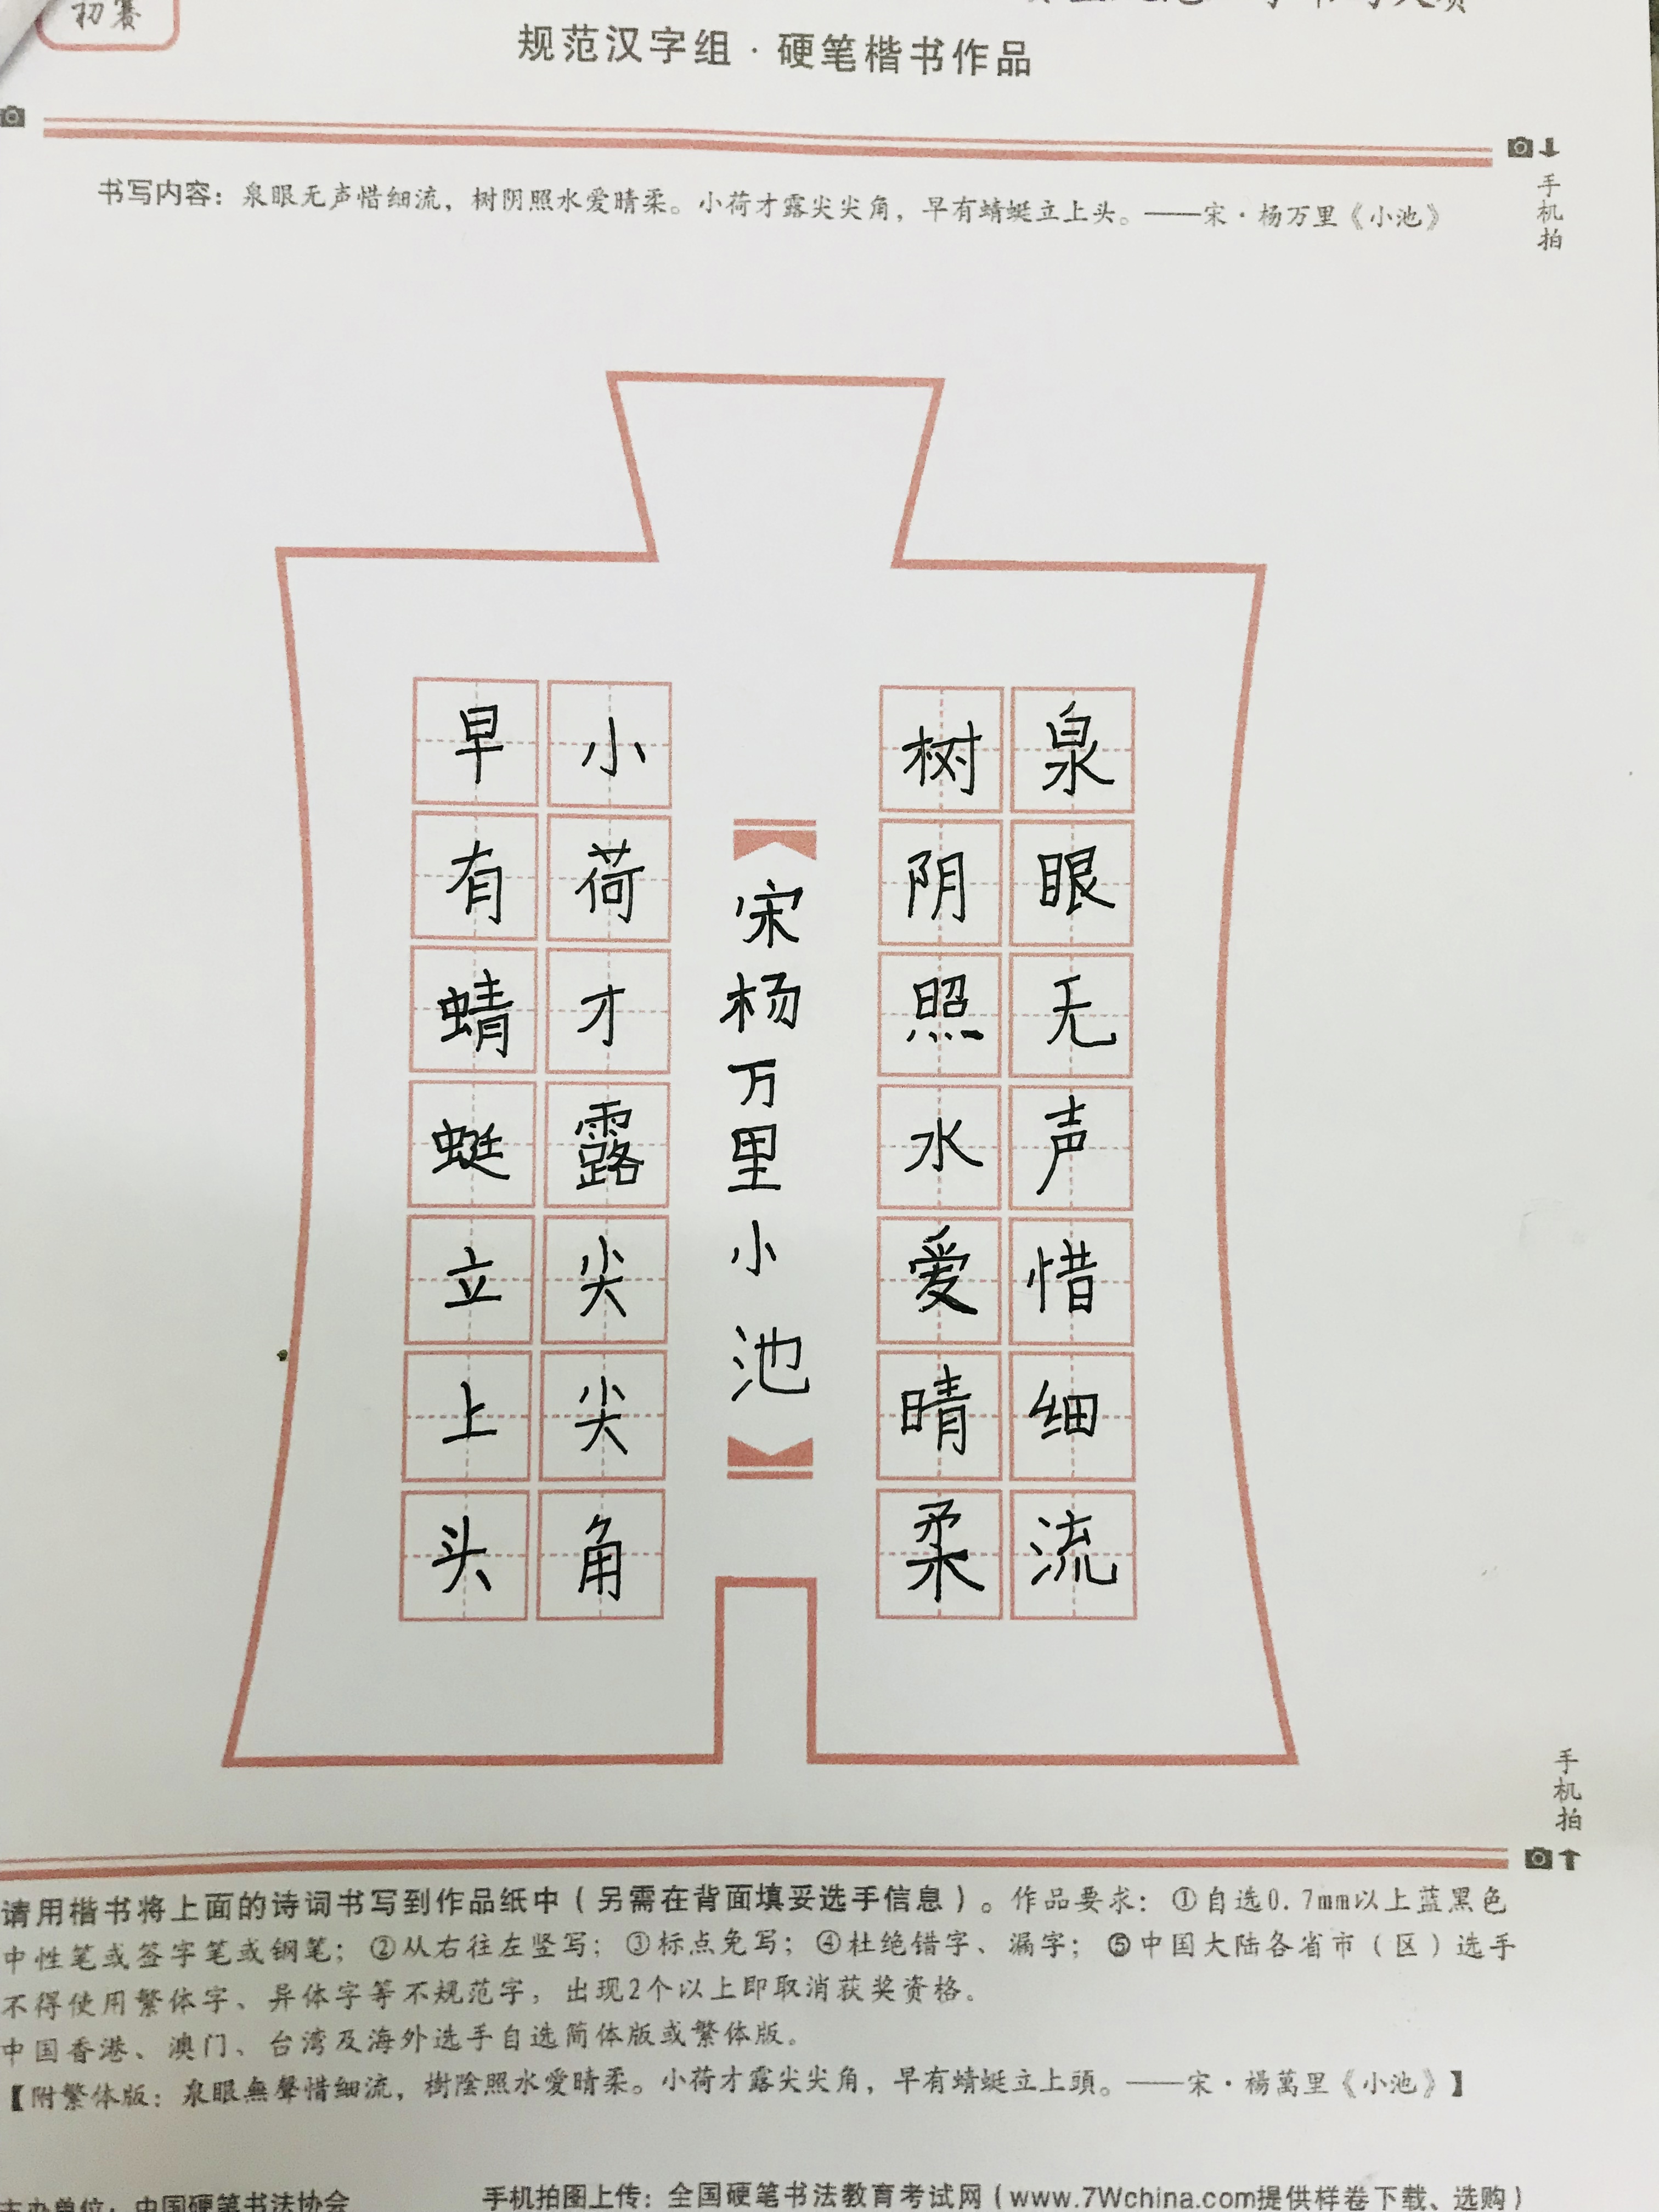 初赛
规范汉字组·硬笔楷书作品
手机拍
书写内容：泉眼无声惜细流，树阴照水爱晴柔。小荷才露尖尖角，早有蜻蜓立上头。——宋·杨万里《小池》
泉眼无声惜细流
树阴照水爱晴柔
宋杨万里小池
小荷才露尖尖角
早有蜻蜓立上头
手机拍
请用楷书将上面的诗词书写到作品纸中（另需在背面填妥选手信息）。作品要求：①自选0.7mm以上蓝黑色
中性笔或签字笔或钢笔；②从右往左竖写；③标点免写；④杜绝错字、漏字；⑤中国大陆各省市（区）选手
不得使用繁体字、异体字等不规范字，出现2个以上即取消获奖资格。
中国香港、澳门、台湾及海外选手自选简体版或繁体版。
【附繁体版：泉眼無聲惜細流，樹陰照水愛晴柔。小荷才露尖尖角，早有蜻蜓立上頭。——宋·楊萬里《小池》】
主办单位：中国硬笔书法协会
手机拍图上传：全国硬笔书法教育考试网（www.7Wchina.com提供样卷下载、选购）